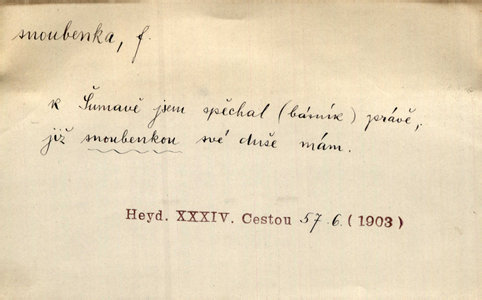 snoubenka, f.
k Šumavě jsem spěchal (básník) právě,
již snoubenkou své duše mám.
Heyd. XXXIV. Cestou 57.6. (1903)